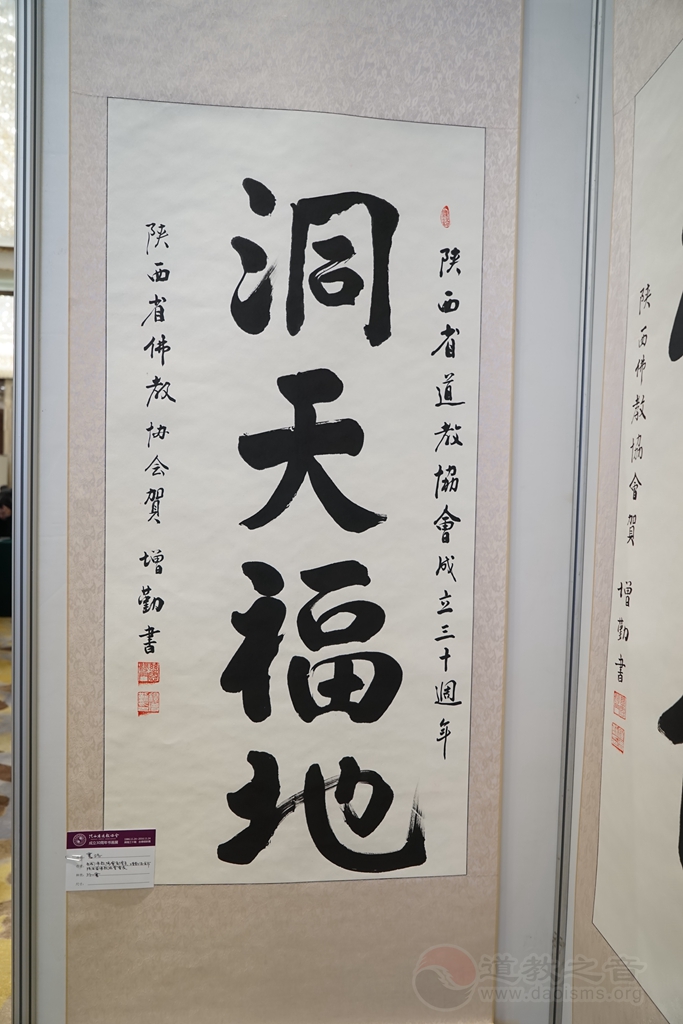 陕西省道教協會成立三十週年
洞天福地
陕西省佛教协会賀 增勤書
陕西佛教協會賀 增勤書
道教之音
www.daoisms.org